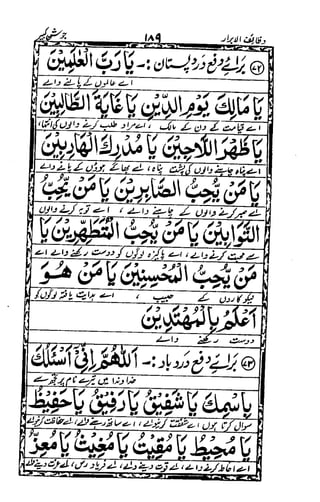 وظائف الابرار ۱۸۹ جوشن کبیر
(۸۲) برائے دفع درد پستان :- يَا رَبَّ الْعٰلَمِيْنَ
اے عالموں کے پالنے والے
يَا مَالِكَ يَوْمِ الدِّيْنِ يَا غَايَةَ الطَّالِبِيْنَ
اے قیامت کے دن کے مالک ، اے مراد طلب کرنے والوں کی انتہا،
يَا ظَهْرَ اللَّاجِيْنَ يَا مُدْرِكَ الْهَارِبِيْنَ
اے پناہ چاہنے والوں کی پشت پناہ، اے بھاگے ہوؤں کے پانے والے
يَا مَنْ يُحِبُّ الصَّابِرِيْنَ يَا مَنْ يُحِبُّ
اے صبر کرنے والوں کے چاہنے والے ، اے توبہ کرنے والوں
التَّوَّابِيْنَ يَا مَنْ يُحِبُّ الْمُتَطَهِّرِيْنَ يَا
سے محبت کرنے والے ، اے پاکیزہ لوگوں کو دوست رکھنے والے اے
مَنْ يُحِبُّ الْمُحْسِنِيْنَ يَا مَنْ هُوَ
نیکو کاروں کے حبیب ، اے ہدایت یافتہ لوگوں کو
اَعْلَمُ بِالْمُهْتَدِيْنَ
دوست رکھنے والے
(۸۳) برائے دفع درد باد :- اَللّٰهُمَّ اِنِّيْ اَسْئَلُكَ
خداوندا میں تیرے نام پر تجھ سے
بِاسْمِكَ يَا شَفِيْقُ يَا رَفِيْقُ يَا حَفِيْظُ
سوال کرتا ہوں اے شفقت کرنے والے ، اے ساتھ دینے والے ، اے حفاظت کرنے والے
يَا مُحِيْطُ يَا مُقِيْتُ يَا مُغِيْثُ يَا مُعِزُّ
اے احاطہ کرنے والے ، اے قوت دینے والے ، اے فریاد رس ، اے عزت دینے والے